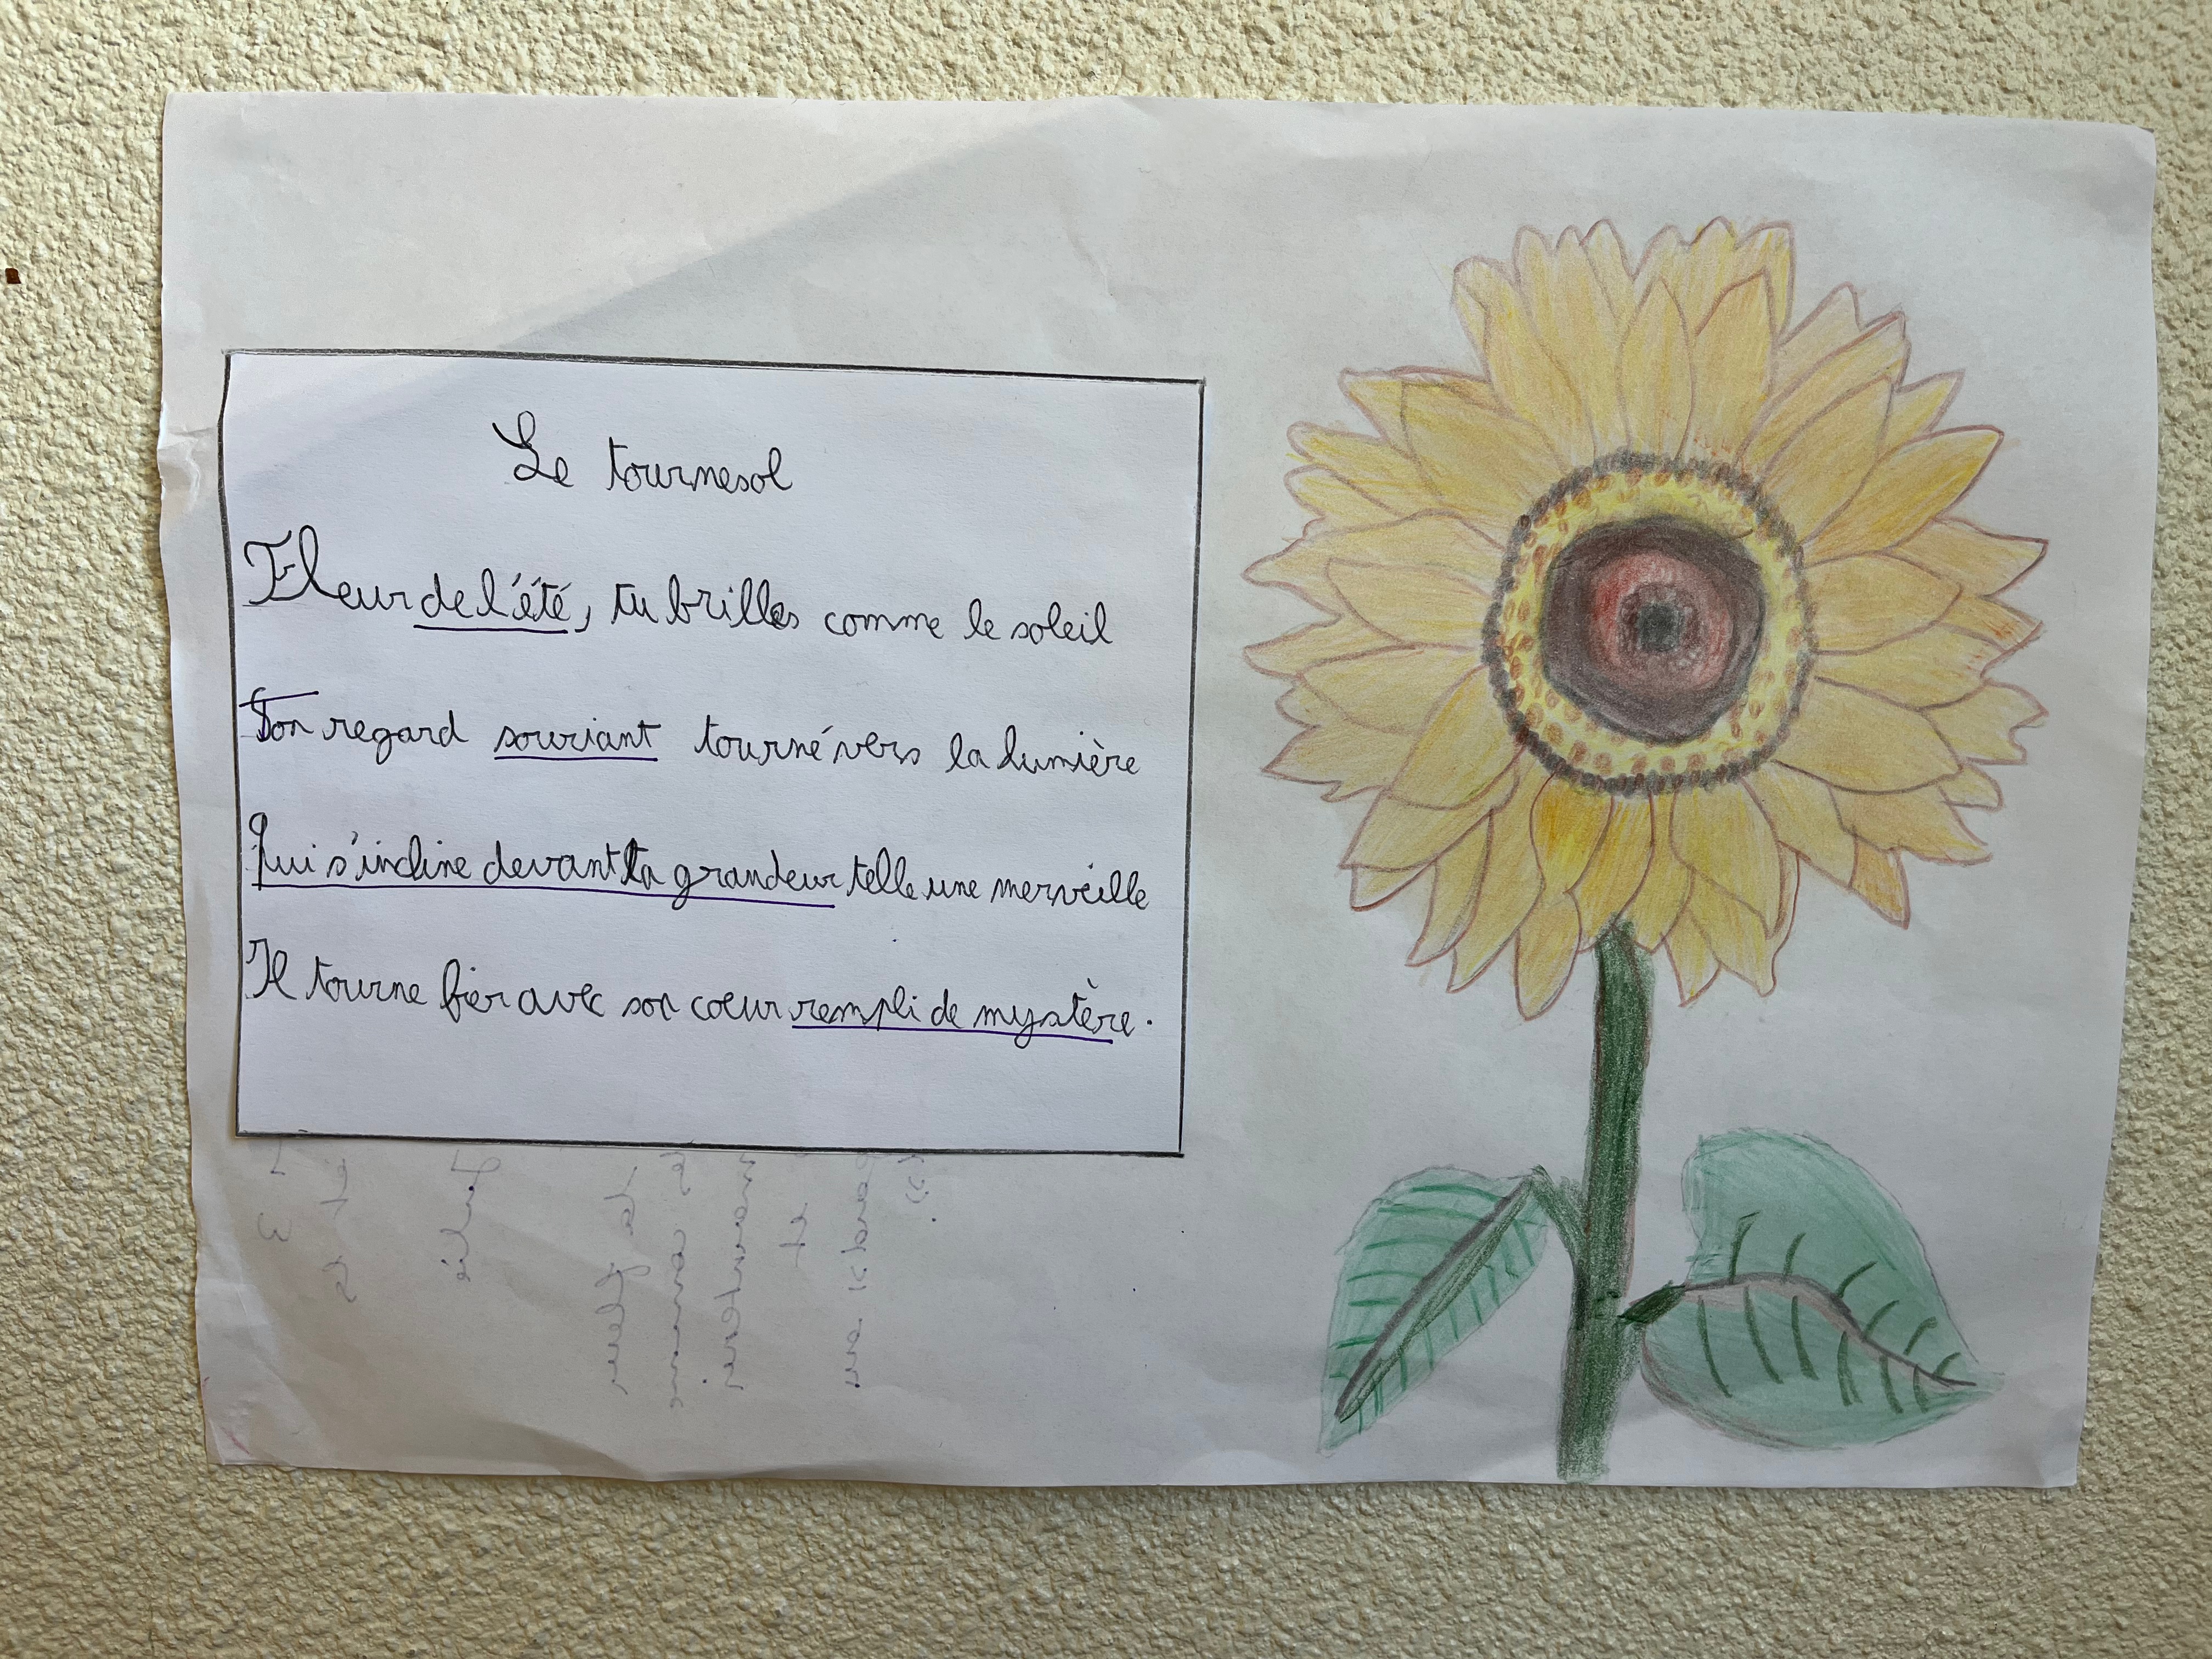 Le tournesol
Fleur de l'été, tu brilles comme le soleil
Ton regard souriant tourné vers la lumière
Qui s'incline devant ta grandeur telle une merveille
Il tourne fier avec son coeur rempli de mystère.